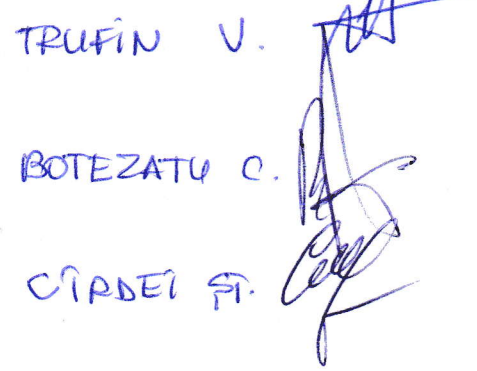 TRUFIN V.
BOTEZATU C.
CÎRDEI ȘT.